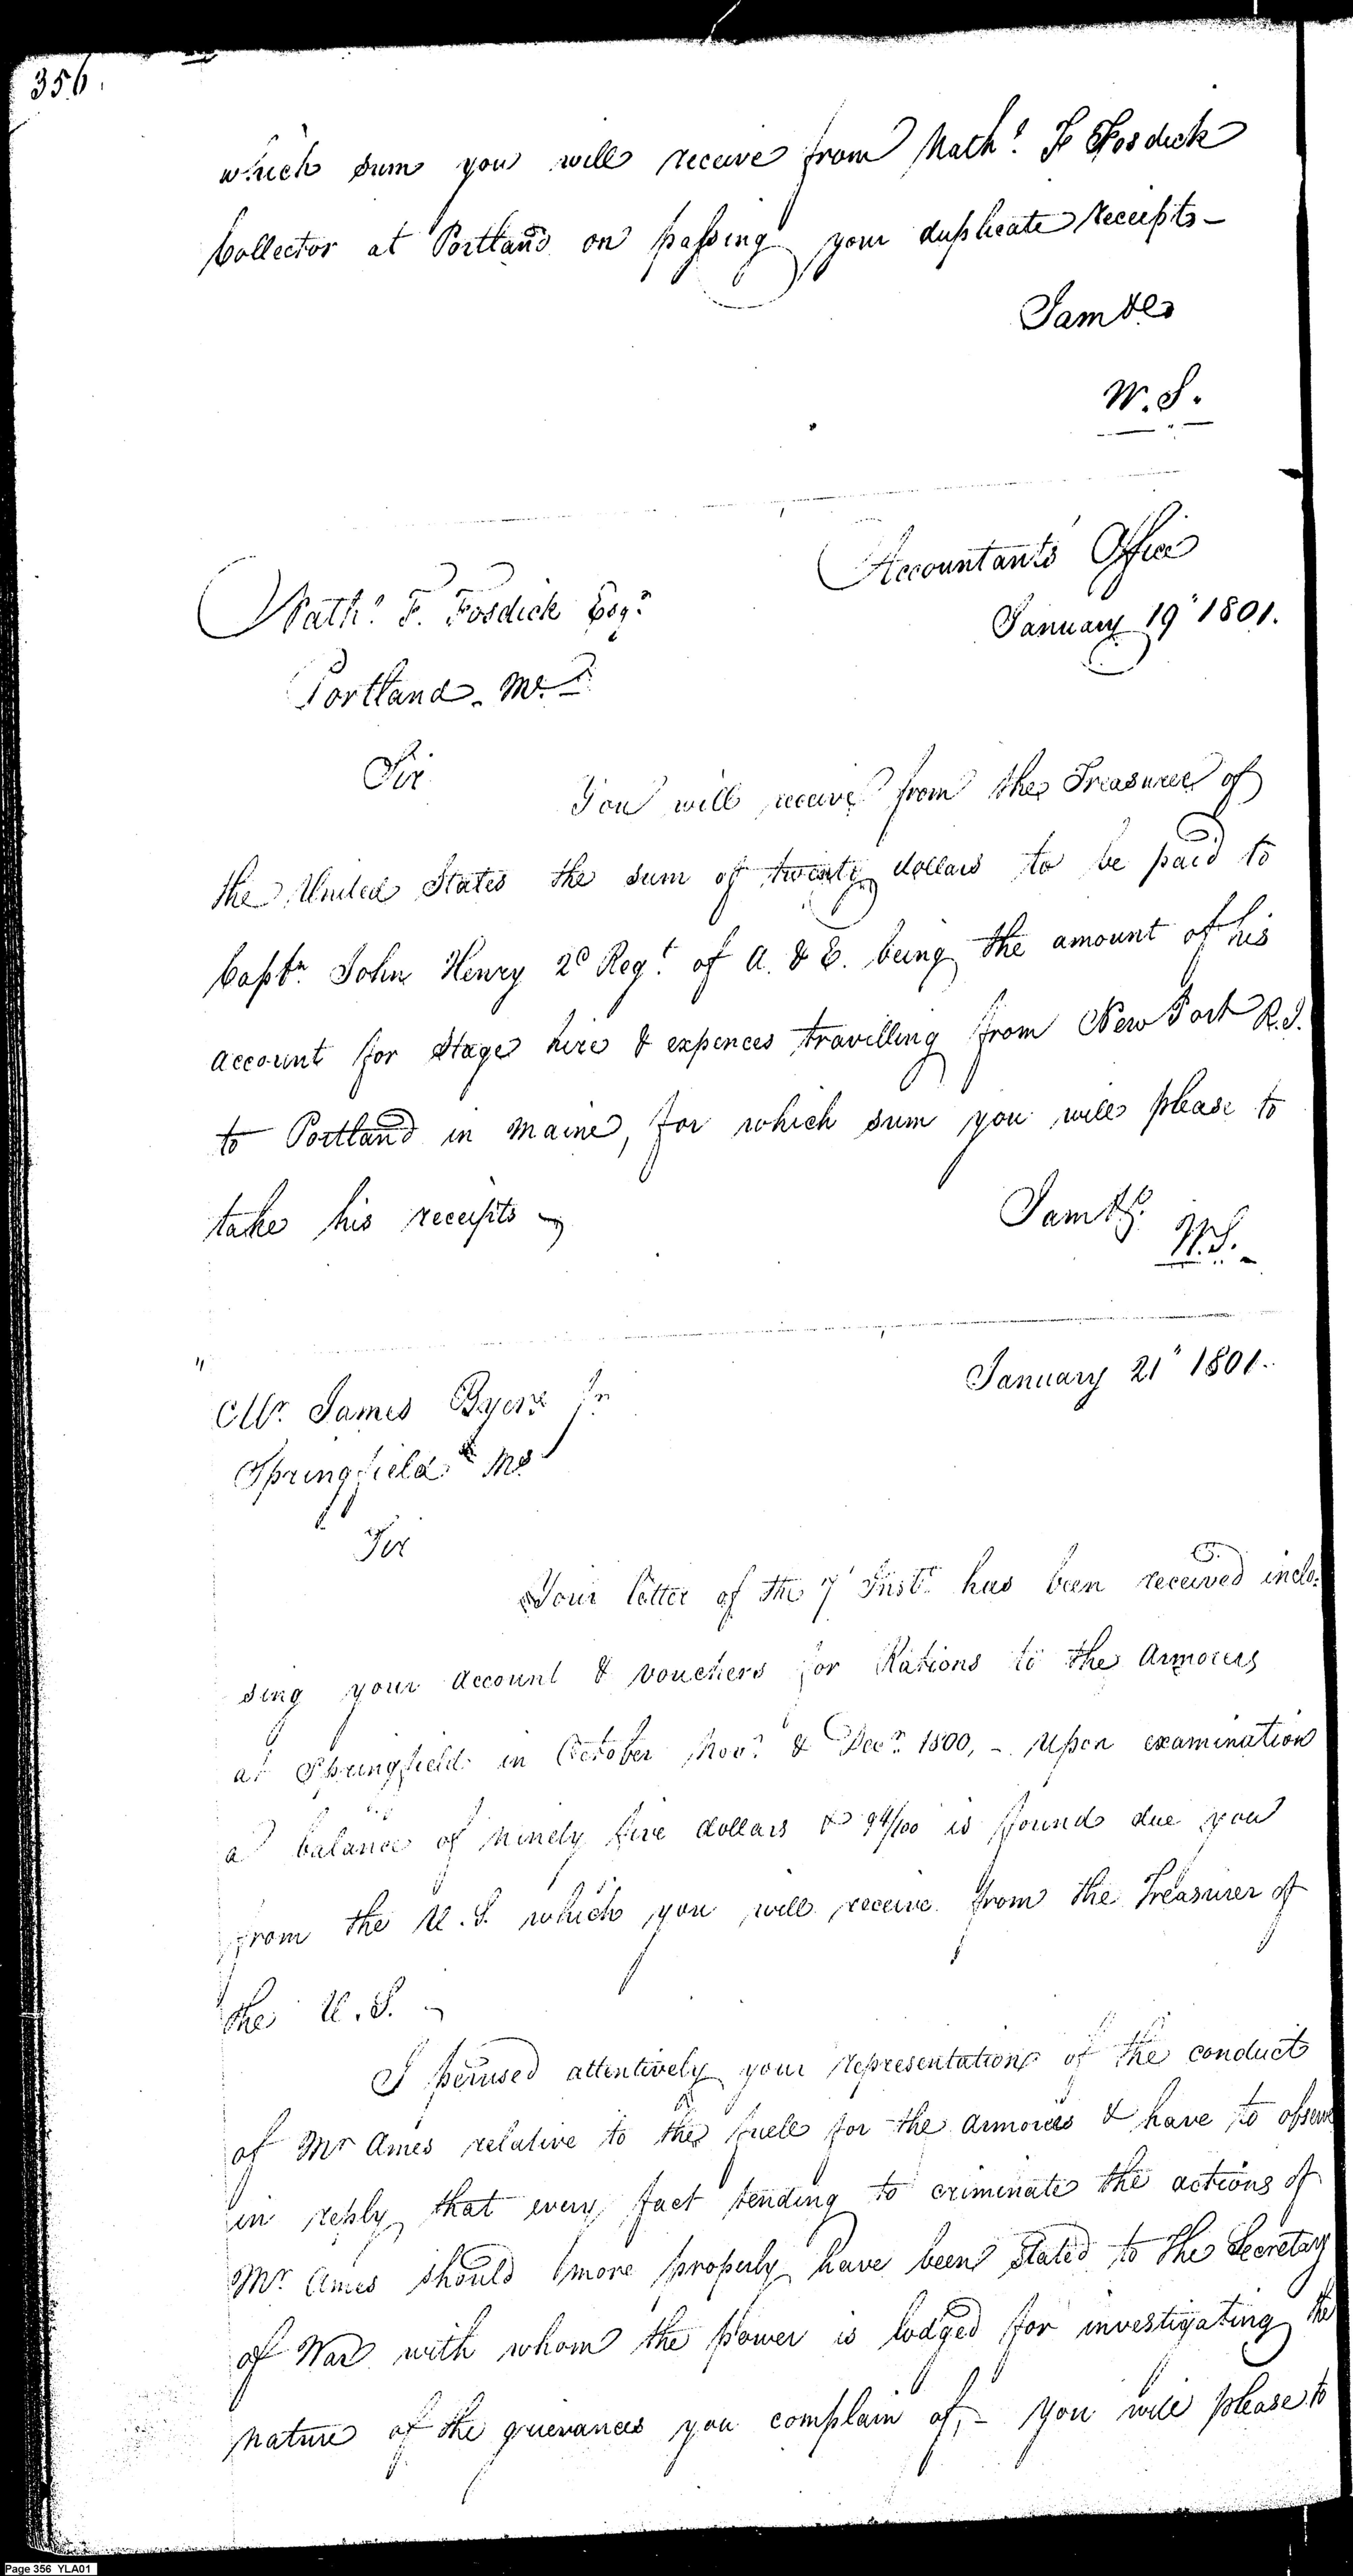 356.
which sum you will receive from Nath.l F Fosdick
Collector at Portland on passing your duplicate receipts—
I am &c
W. S.
Accountants Office
Nath.l F. Fosdick Esqr.
January 19" 1801.
Portland. Me.
Sir
You will receive from the Treasurer of
the United States the sum of twenty dollars to be paid to
Captn. John Henry 2d Regt. of A. & E. being the amount of his
account for Stage hire & expences travelling from New Port R.I.
to Portland in Maine, for which sum you will please to
take his receipts —
I am &c.
W.S.
January 21" 1801.
Mr. James Byers Jr
Springfield Ms.
Sir
Your letter of the 7 Inst. has been received inclo-
sing your account & vouchers for Rations to the Armorers
at Springfield in October Novr. & Decr. 1800, — Upon examination
a balance of ninety five dollars & 94/100 is found due you
from the U. S. which you will receive from the Treasurer of
the U. S. —
I perused attentively your representations of the conduct
of Mr Ames relative to the fuell for the armories & have to observe
in reply that every fact tending to criminate the actions of
Mr. Ames should more properly have been stated to the Secretary
of War with whom the power is lodged for investigating the
nature of the grievances you complain of, — You will please to
Page 356 YLA01